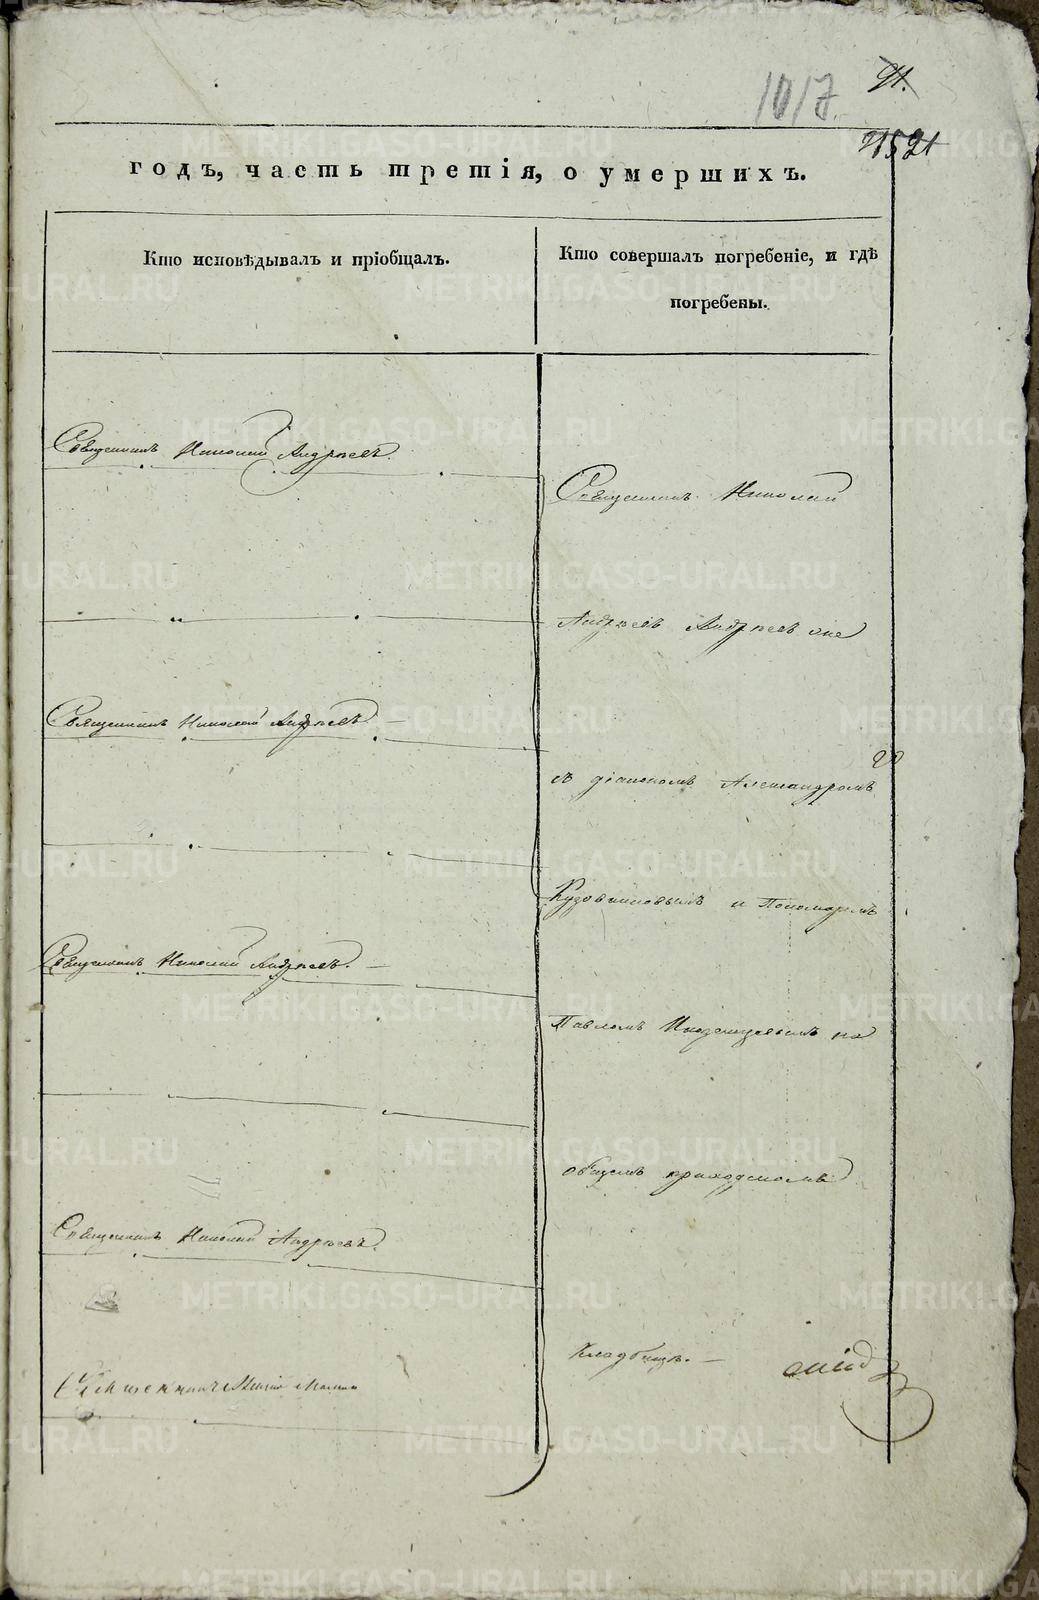 1017
91.
21521
годъ, часть третія, о умершихъ.
Кто исповѣдывалъ и пріобщалъ.
Кто совершалъ погребеніе, и гдѣ
погребены.
Священникъ Николай Андреевъ.
Священникъ Николай
Андреевъ Андреевъ оне
Священникъ Николай Андреевъ
съ діакономъ Александромъ
Кузовниковымъ и Пономаремъ
Священникъ Николай Андреевъ.
Павломъ на
общемъ приходскомъ
Священникъ Николай Андреевъ.
Кладбищѣ.
Священникъ
METRIKI.GASO-URAL.RU